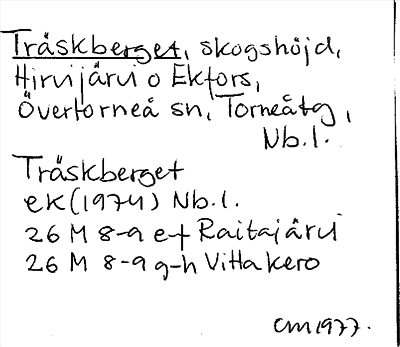 Träskberget, skogshöjd,
Hirvijärvi o Ekfors,
Övertorneå sn, Torneåtg,
Nb.l.
Träskberget
ek (1974) Nb.l.
26 M 8-9 e-f Raitajärvi
26 M 8-9 g-h Vittakero
CM 1977.